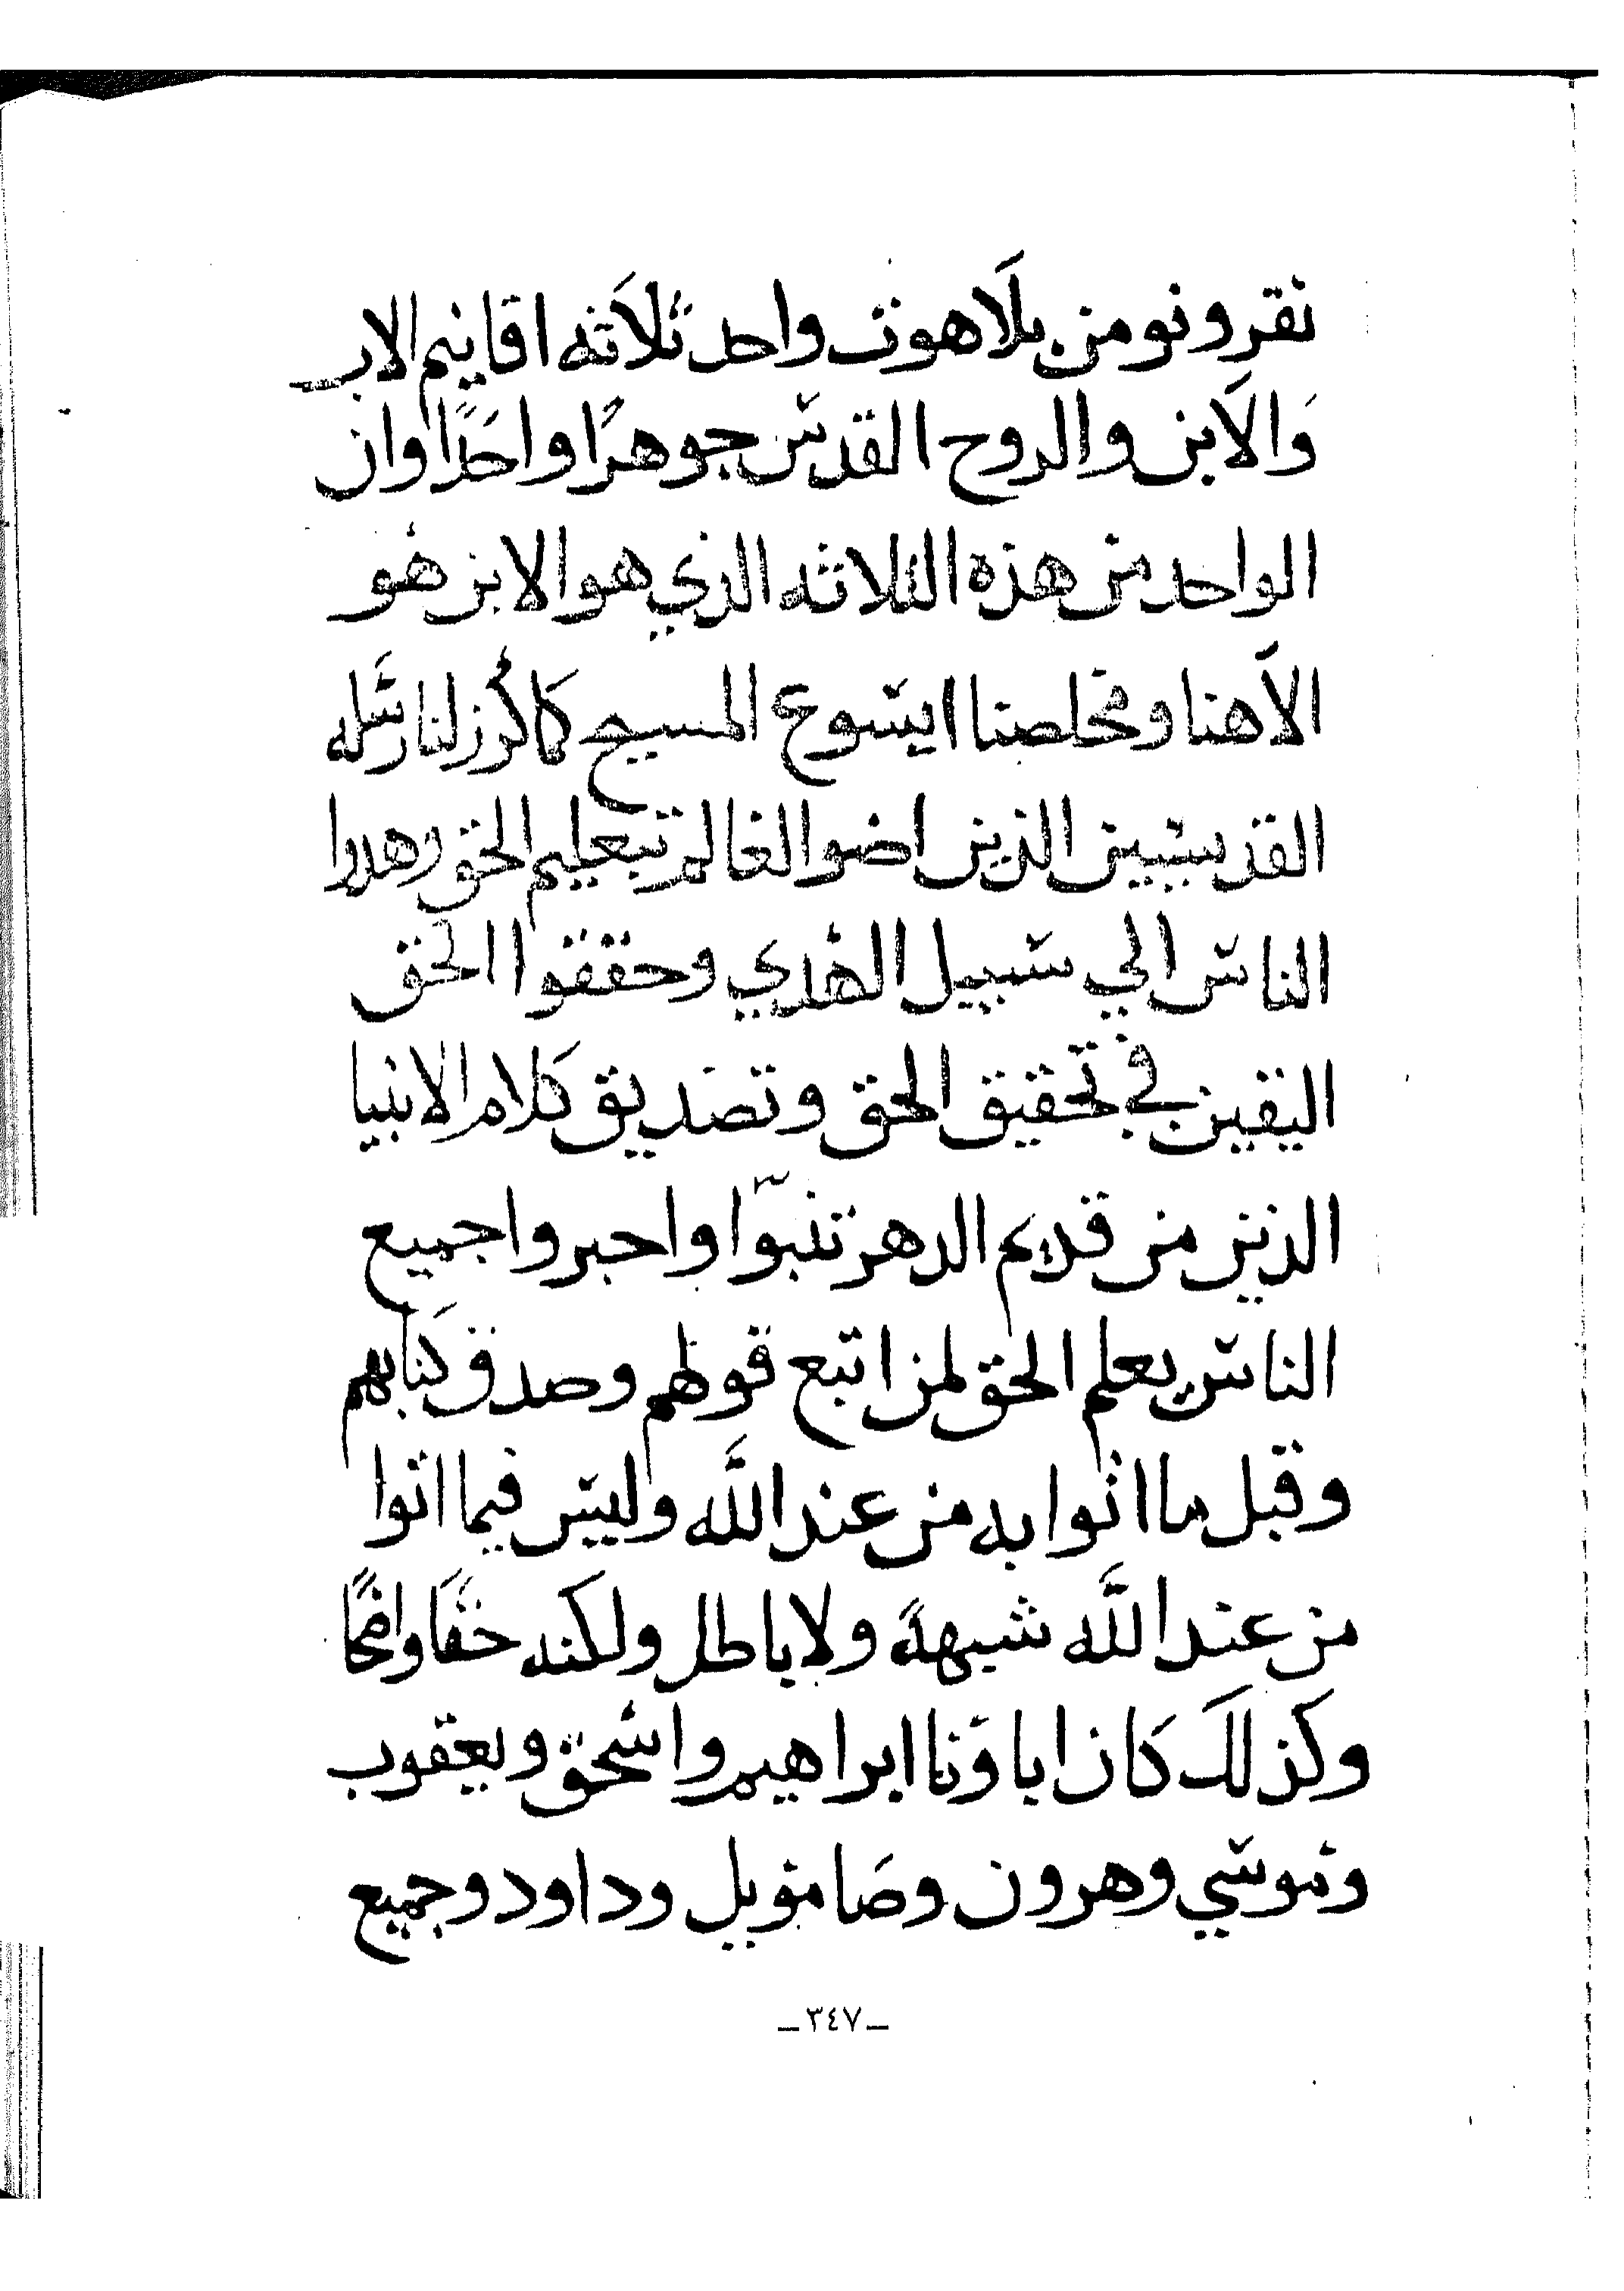 نقر ونومن بلاهوت واحد ثلاثه اقانيم الاب
والابن والروح القدس جوهرًا واحدًا وان
الواحد من هذه الثلاثه الذي هو الابن هو
الاهنا ومخلصنا ايسوع المسيح كما كرز لنا رسله
القديسيين الذين اضوا العالم بتعليم الحق وهدوا
الناس الي سبيل الهدي وحققوا الحق
اليقين في تحقيق الحق وتصديق كلام الانبيا
الذين من قديم الدهر تنبوا واخبروا جميع
الناس بعلم الحق لمن اتبع قولهم وصدق كتابهم
وقبل ما اتوا به من عند الله وليس فيما اتوا
من عند الله شبهةً ولا باطل ولكنه حقًا واضحًا
وكذلك كان اباونا ابراهيم واسحق ويعقوب
وموسي وهرون وصامويل وداود وجميع
ـ٣٤٧ـ